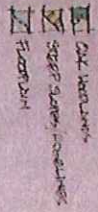 OAK WOODLANDS
STEEP SLOPES/POWERLINES
FLOODPLAIN